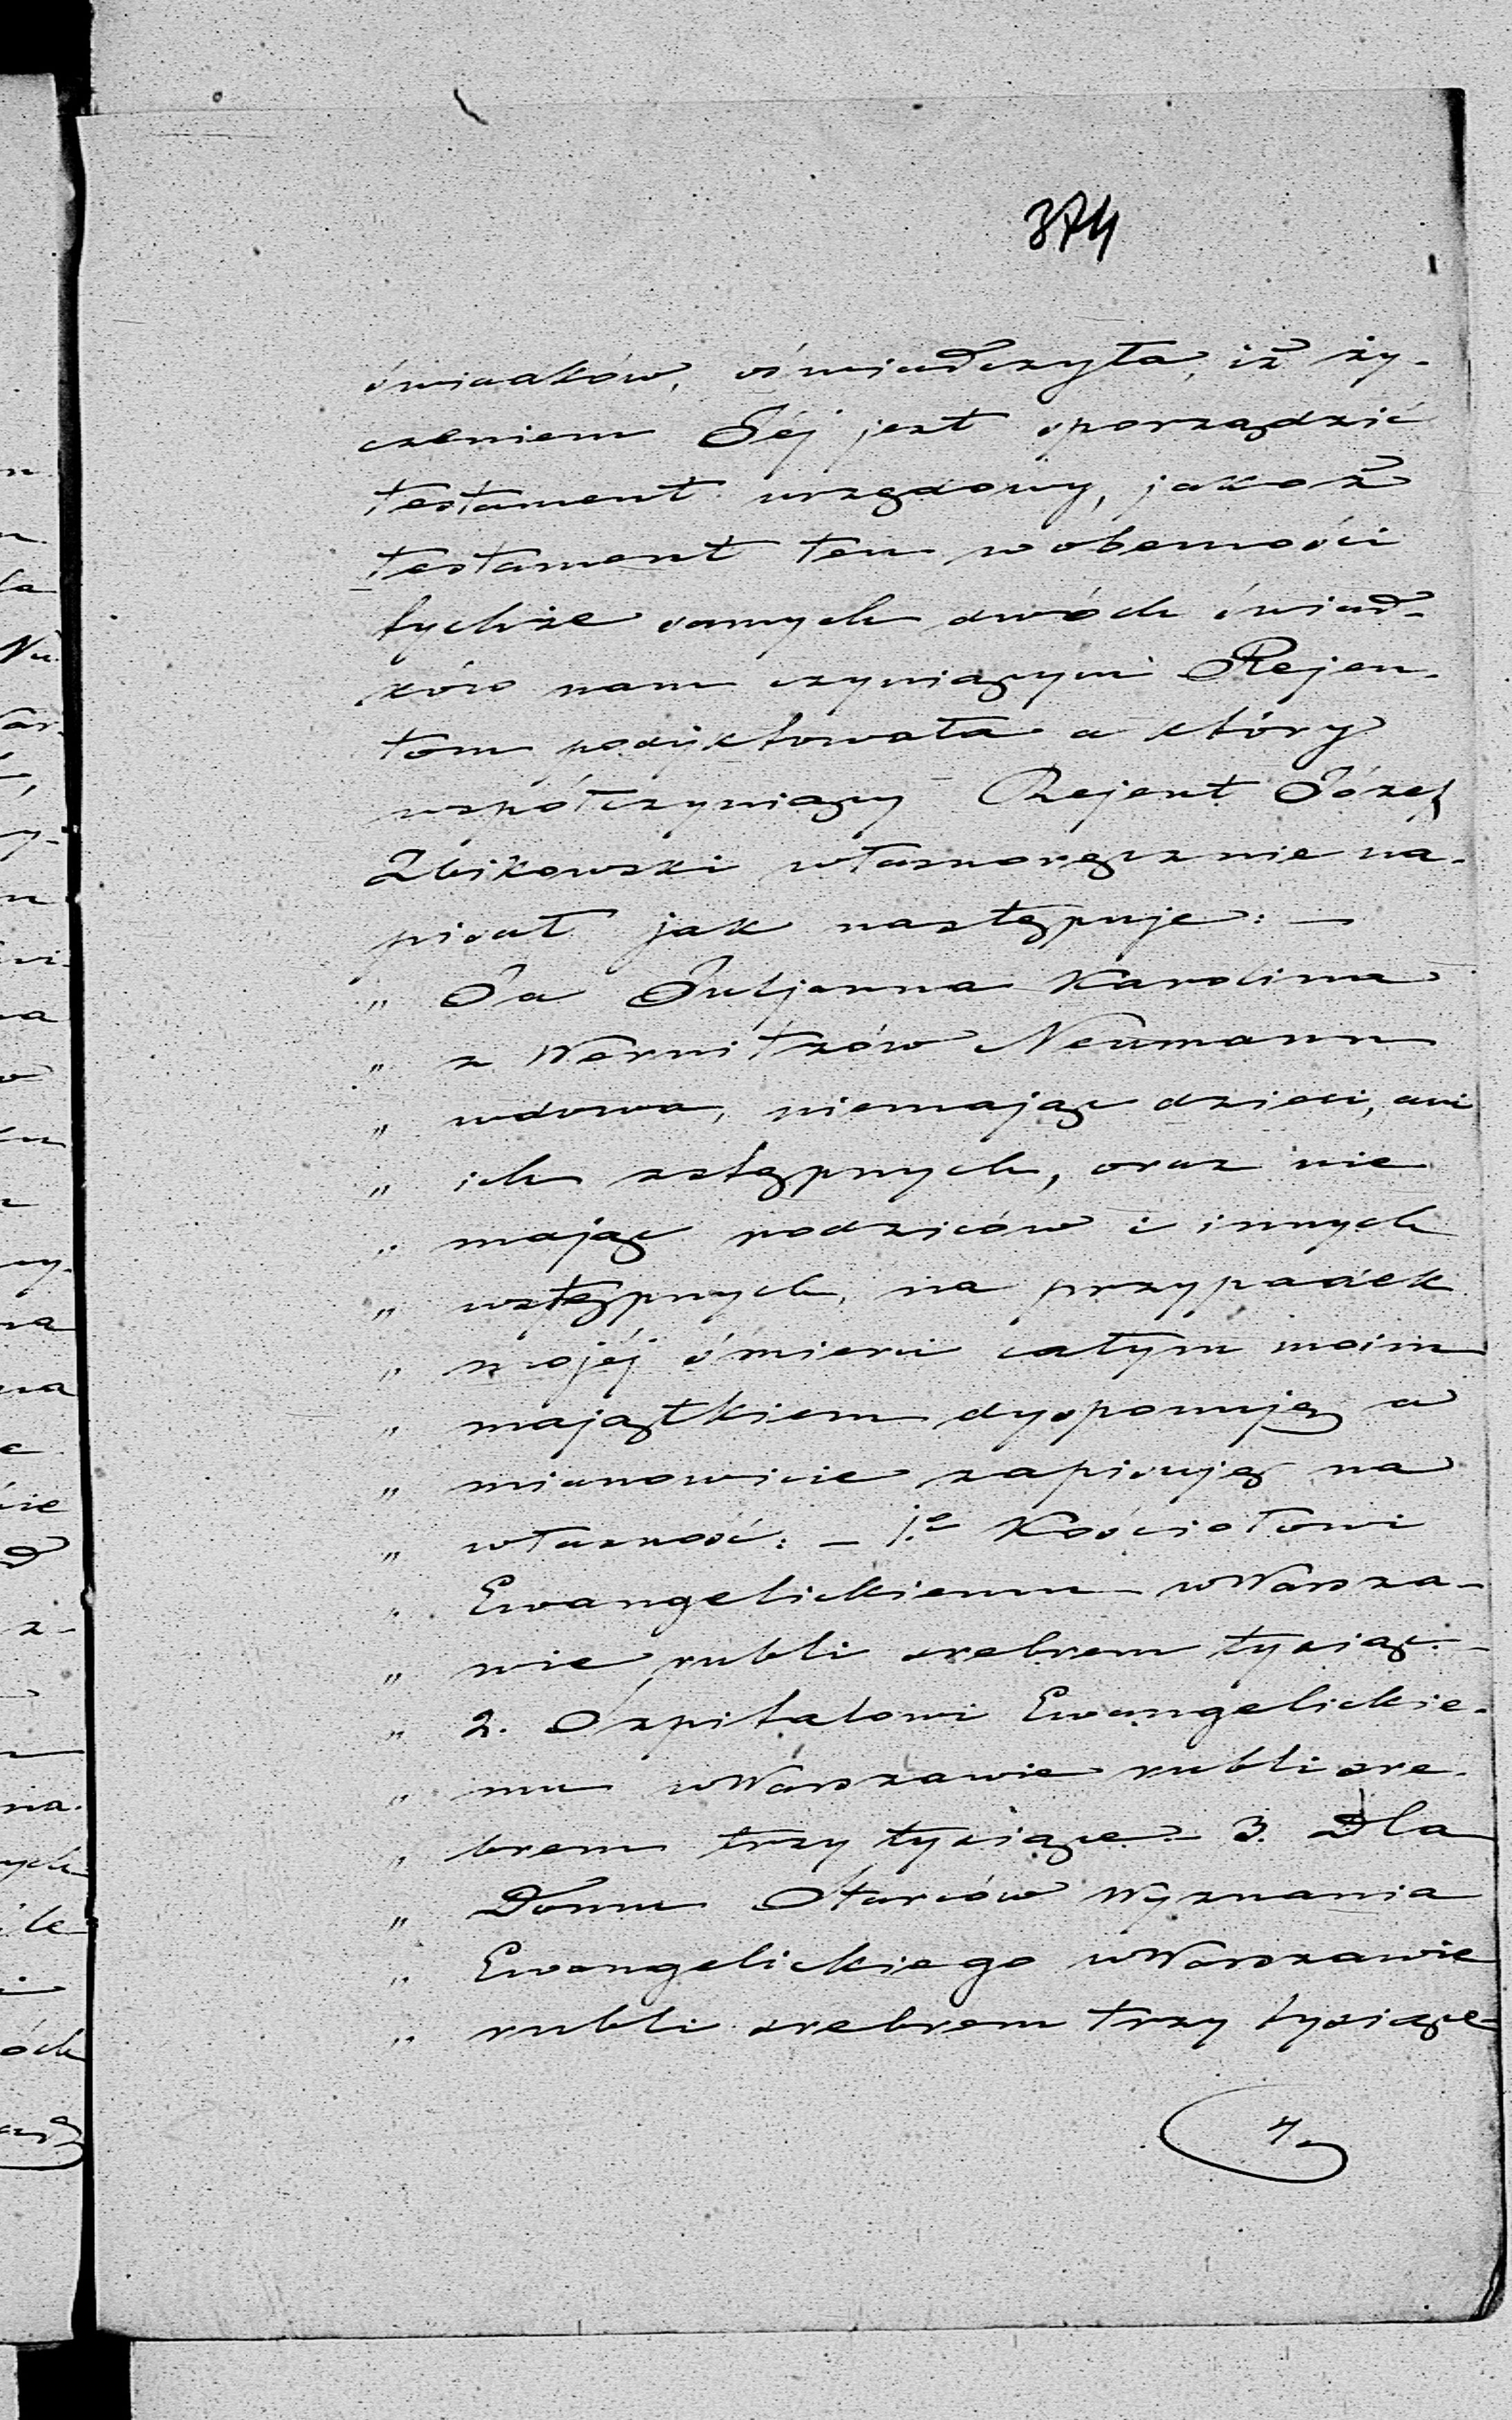 374
świadków, oświadczyła, iż ży-
czeniem Jéj jest sporządzić
testament urzędowy, jakoż
testament ten w obecności
tychże samych dwóch świad-
ków nam czyniącym Rejen-
tom podyktowała a który
współczyniący Rejent Józef
Zbikowski własnoręcznie na-
pisał jak następuje: —
„ Ja Juljanna Karolina
„ z Wernitzów Neumann
„ wdowa, niemając dzieci, ani
„ ich zstępnych, oraz nie
„ mając rodziców i innych
„ wstępnych, na przypadek
„ mojéj śmierci całym moim
„ majątkiem dysponuję a
„ mianowicie zapisuję na
„ własność: — 1e Kościołowi
„ Ewangelickiemu w Warsza-
„ wie rubli srebrem tysiąc. —
„ 2. Szpitalowi Ewangelickie-
„ mu w Warszawie rubli sre-
„ brem trzy tysiące. — 3. Dla
„ Domu Starców Wyznania
„ Ewangelickiego w Warszawie
„ rubli srebrem trzy tysiące